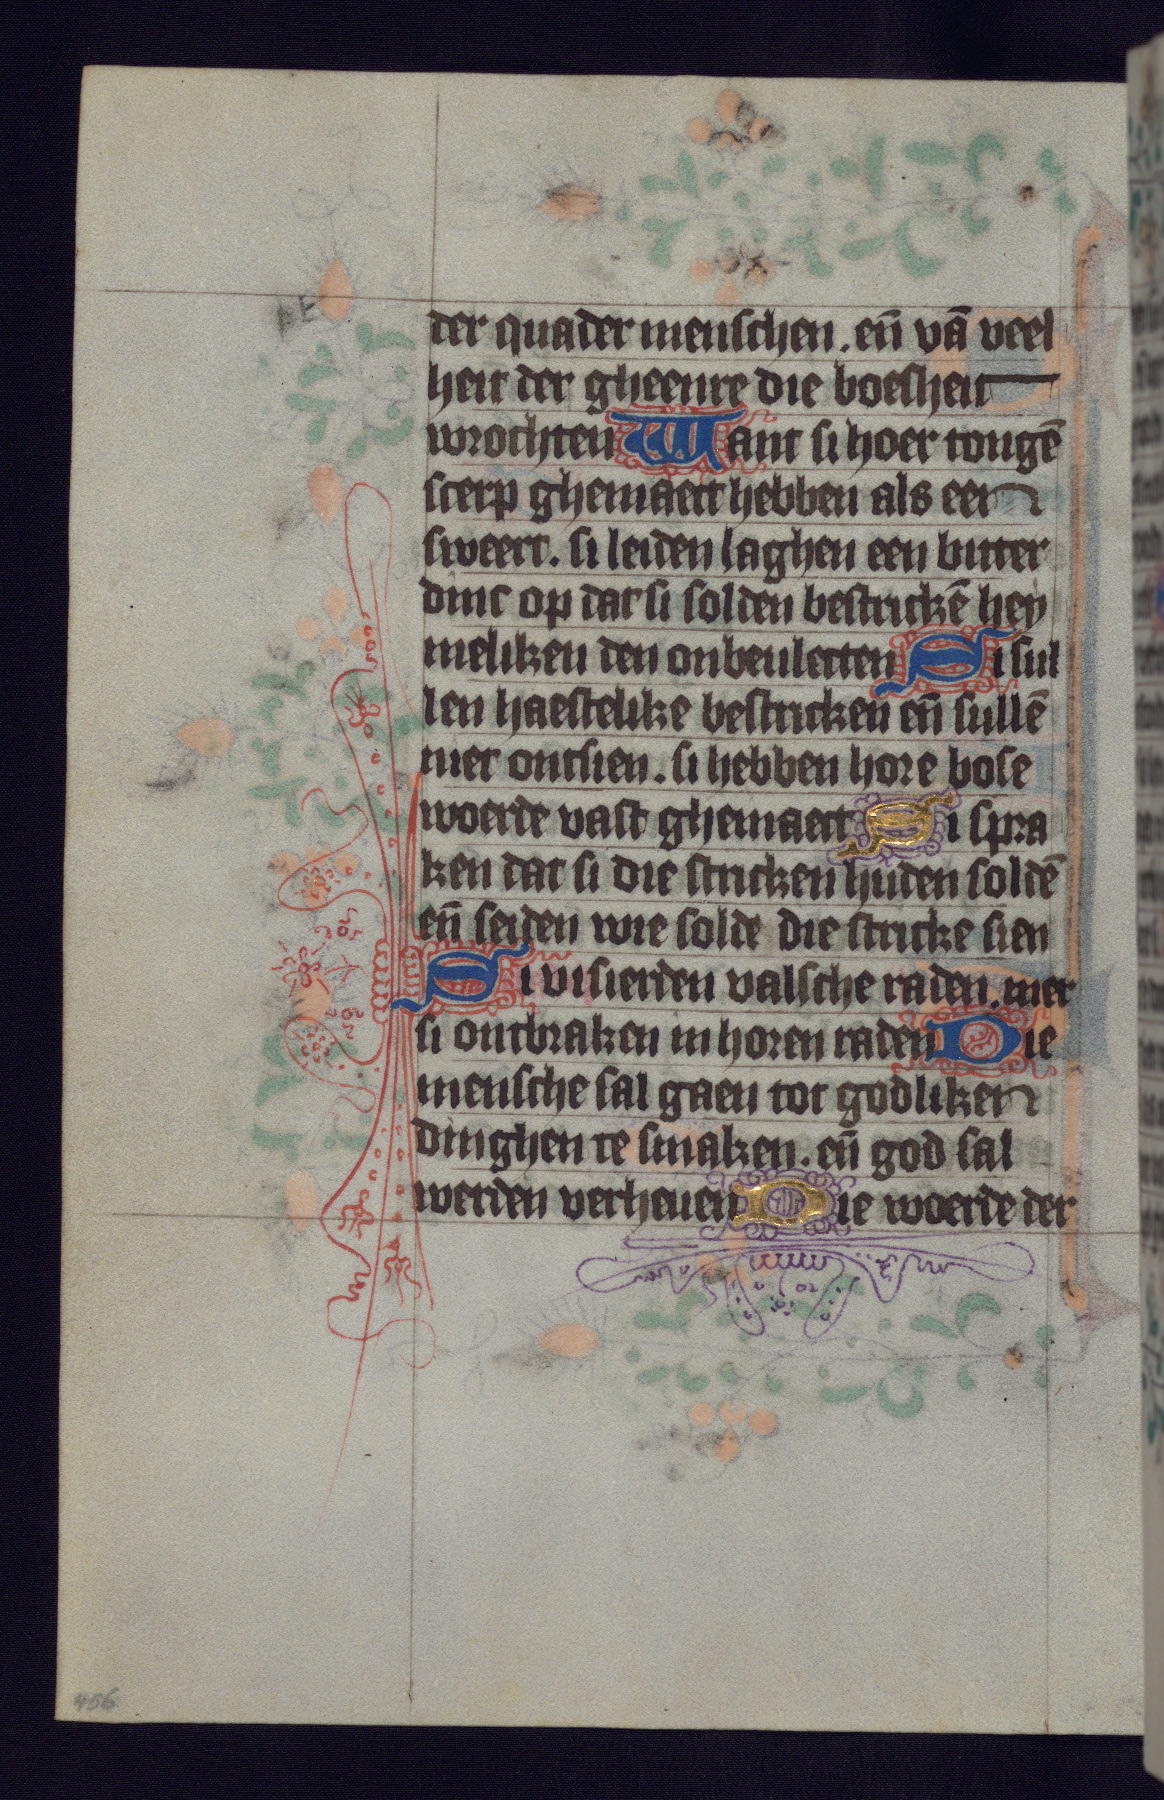 der quader menschen. en̄ vā veel
heit der gheenre die boesheit
wrochten Want si hoer tongē
scerp ghemaect hebben als een
sweert. si leiden laghen een bitter
dinc op dat si solden bestrickē hey
meliken den onbeulecten Si sul
len haestelike bestricken en̄ sullē
niet ontsien. si hebben hore bose
woerde vast ghemaect Si spra
ken dat si die stricken huden soldē
en̄ seiden wie solde die stricke sien
Si visierden valsche raden. mer
si ontbraken in horen raden Die
mensche sal gaen tot godliken
dinghen te smaken. en̄ god sal
werden verheuen Die woerde der
456